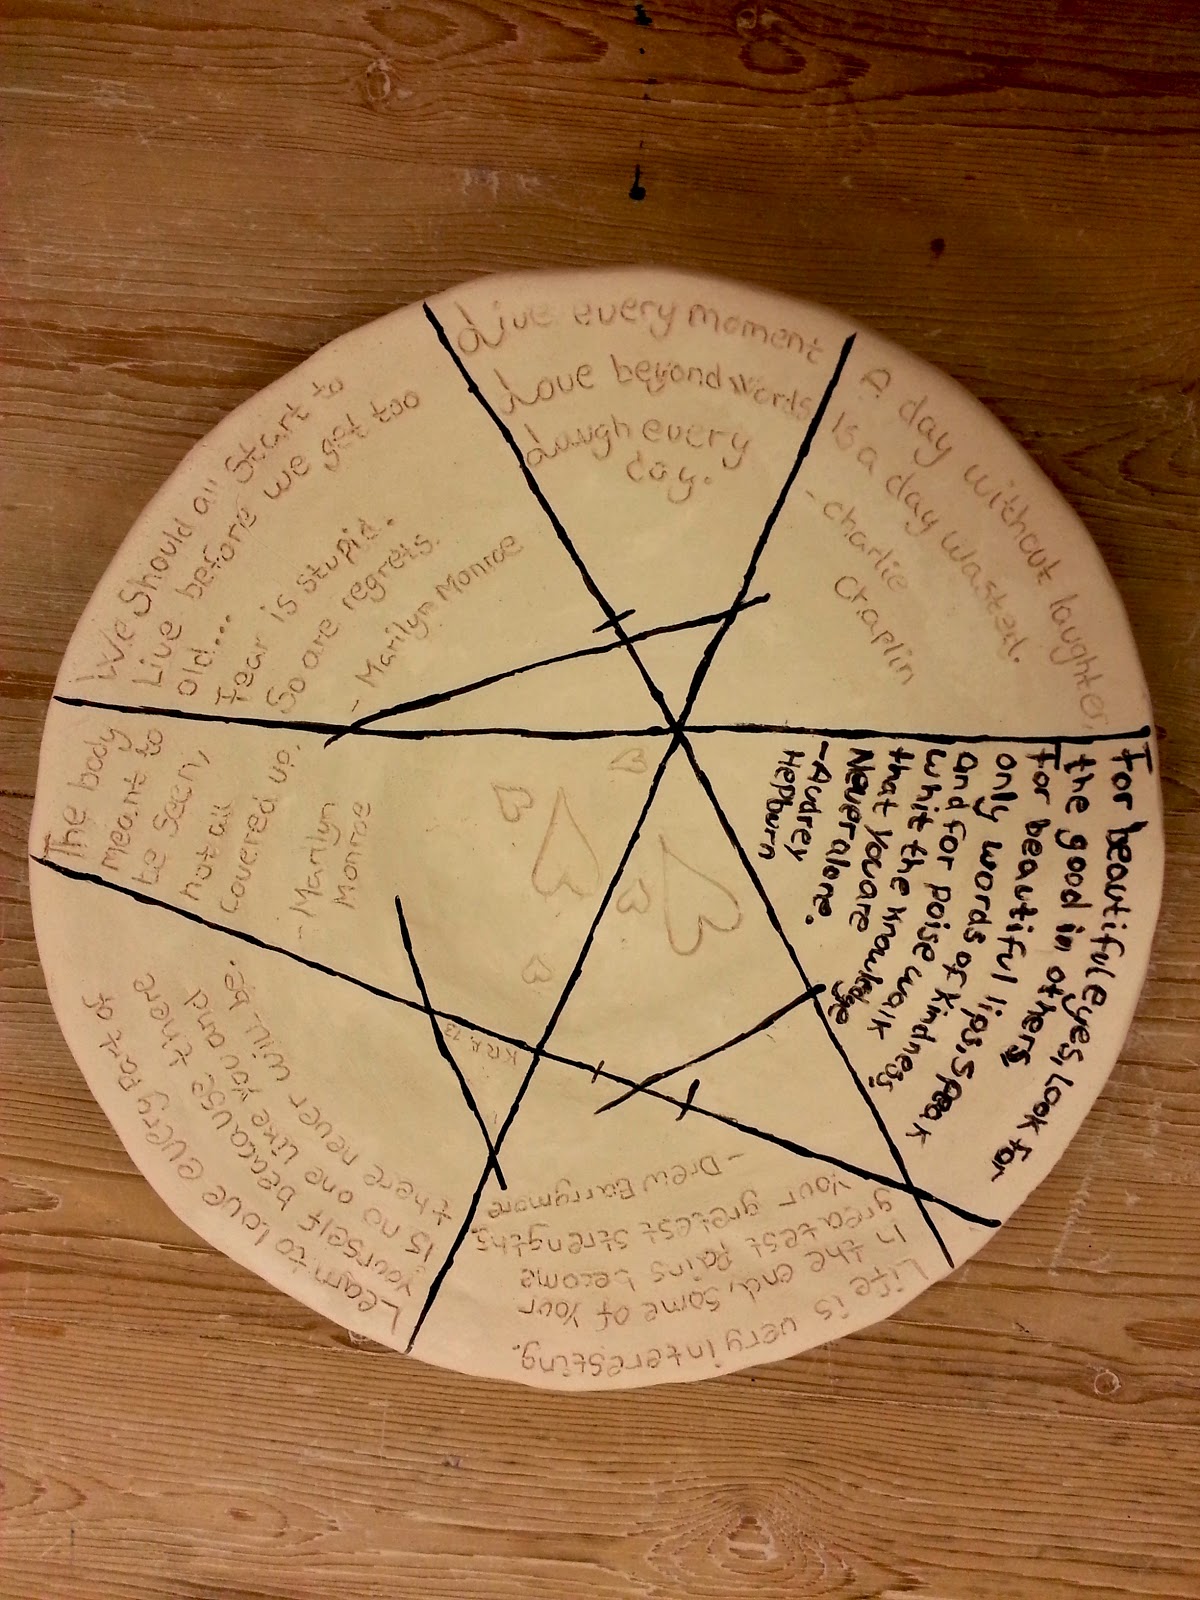 Live every moment
Love beyond words
Laugh every
day.
A day without laughter,
Is a day wasted.
- Charlie
Chaplin
For beautiful eyes, Look for
the good in others
For beautiful lips, speak
only words of kindness
and for poise walk
whit the knowledge
that you are
Never alone.
- Audrey
Hepburn
Life is very interesting.
In the end, some of your
greatest pains become
your gretest strengths.
- Drew Barrymore
Learn to Love every part of
yourself beacause there
is no one like you and
there never will be.
The body
meant to
be seen,
not all
covered up.
- Marilyn
Monroe
We Should all Start to
Live before we get too
old...
Fear is stupid.
So are regrets.
- Marilyn Monroe